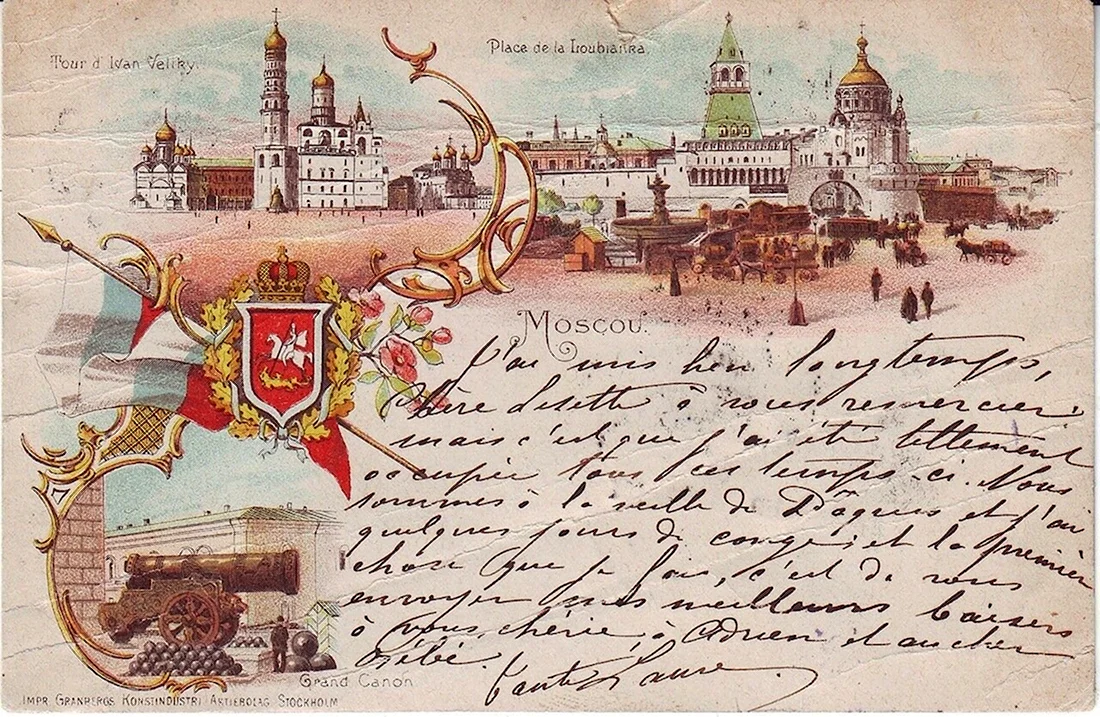 Tour d'Ivan Veliky.
Place de la Loubianka.
Moscou.
J'ai mis bien longtemps,
chère Lisette à vous remercier
mais c'est que j'ai été tellement
occupée tous ces temps ci. Nous
sommes à la veille de Pâques et j'ai
quelques jours de congé et la première
chose que je fais, c'est de vous
envoyer mes meilleurs baisers
à vous, chérie, à Adrien et au cher
Bébé.
Tante Laure
Grand Canon
Impr. Granbergs Konstindustri Aktiebolag Stockholm